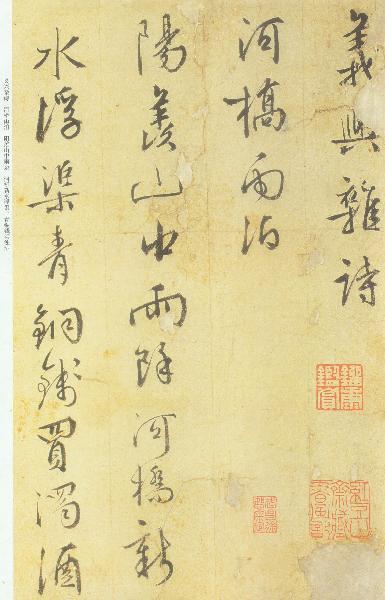 義興雜詩
河橋雨泊
陽羨山中雨餘河橋新
水浮渠青銅錢買濁酒